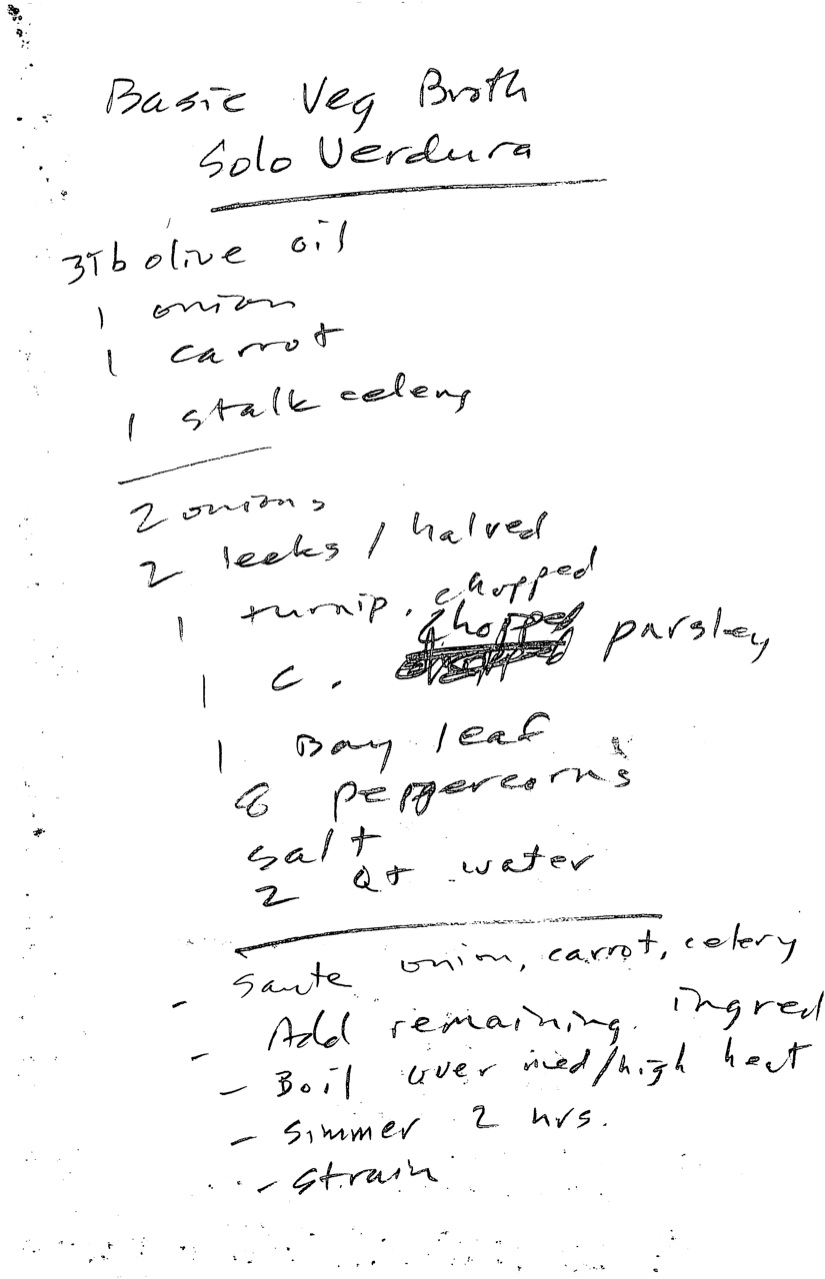 Basic Veg Broth
Solo Verdura
3Tb olive oil
1 onion
1 carrot
1 stalk celery
2 onions
2 leeks / halved
1 turnip. chopped
1 c. chopped parsley
1 Bay leaf
8 peppercorns
salt
2 Qt water
- Saute onion, carrot, celery
- Add remaining ingred
- Boil over med/high heat
- Simmer 2 hrs.
- Strain